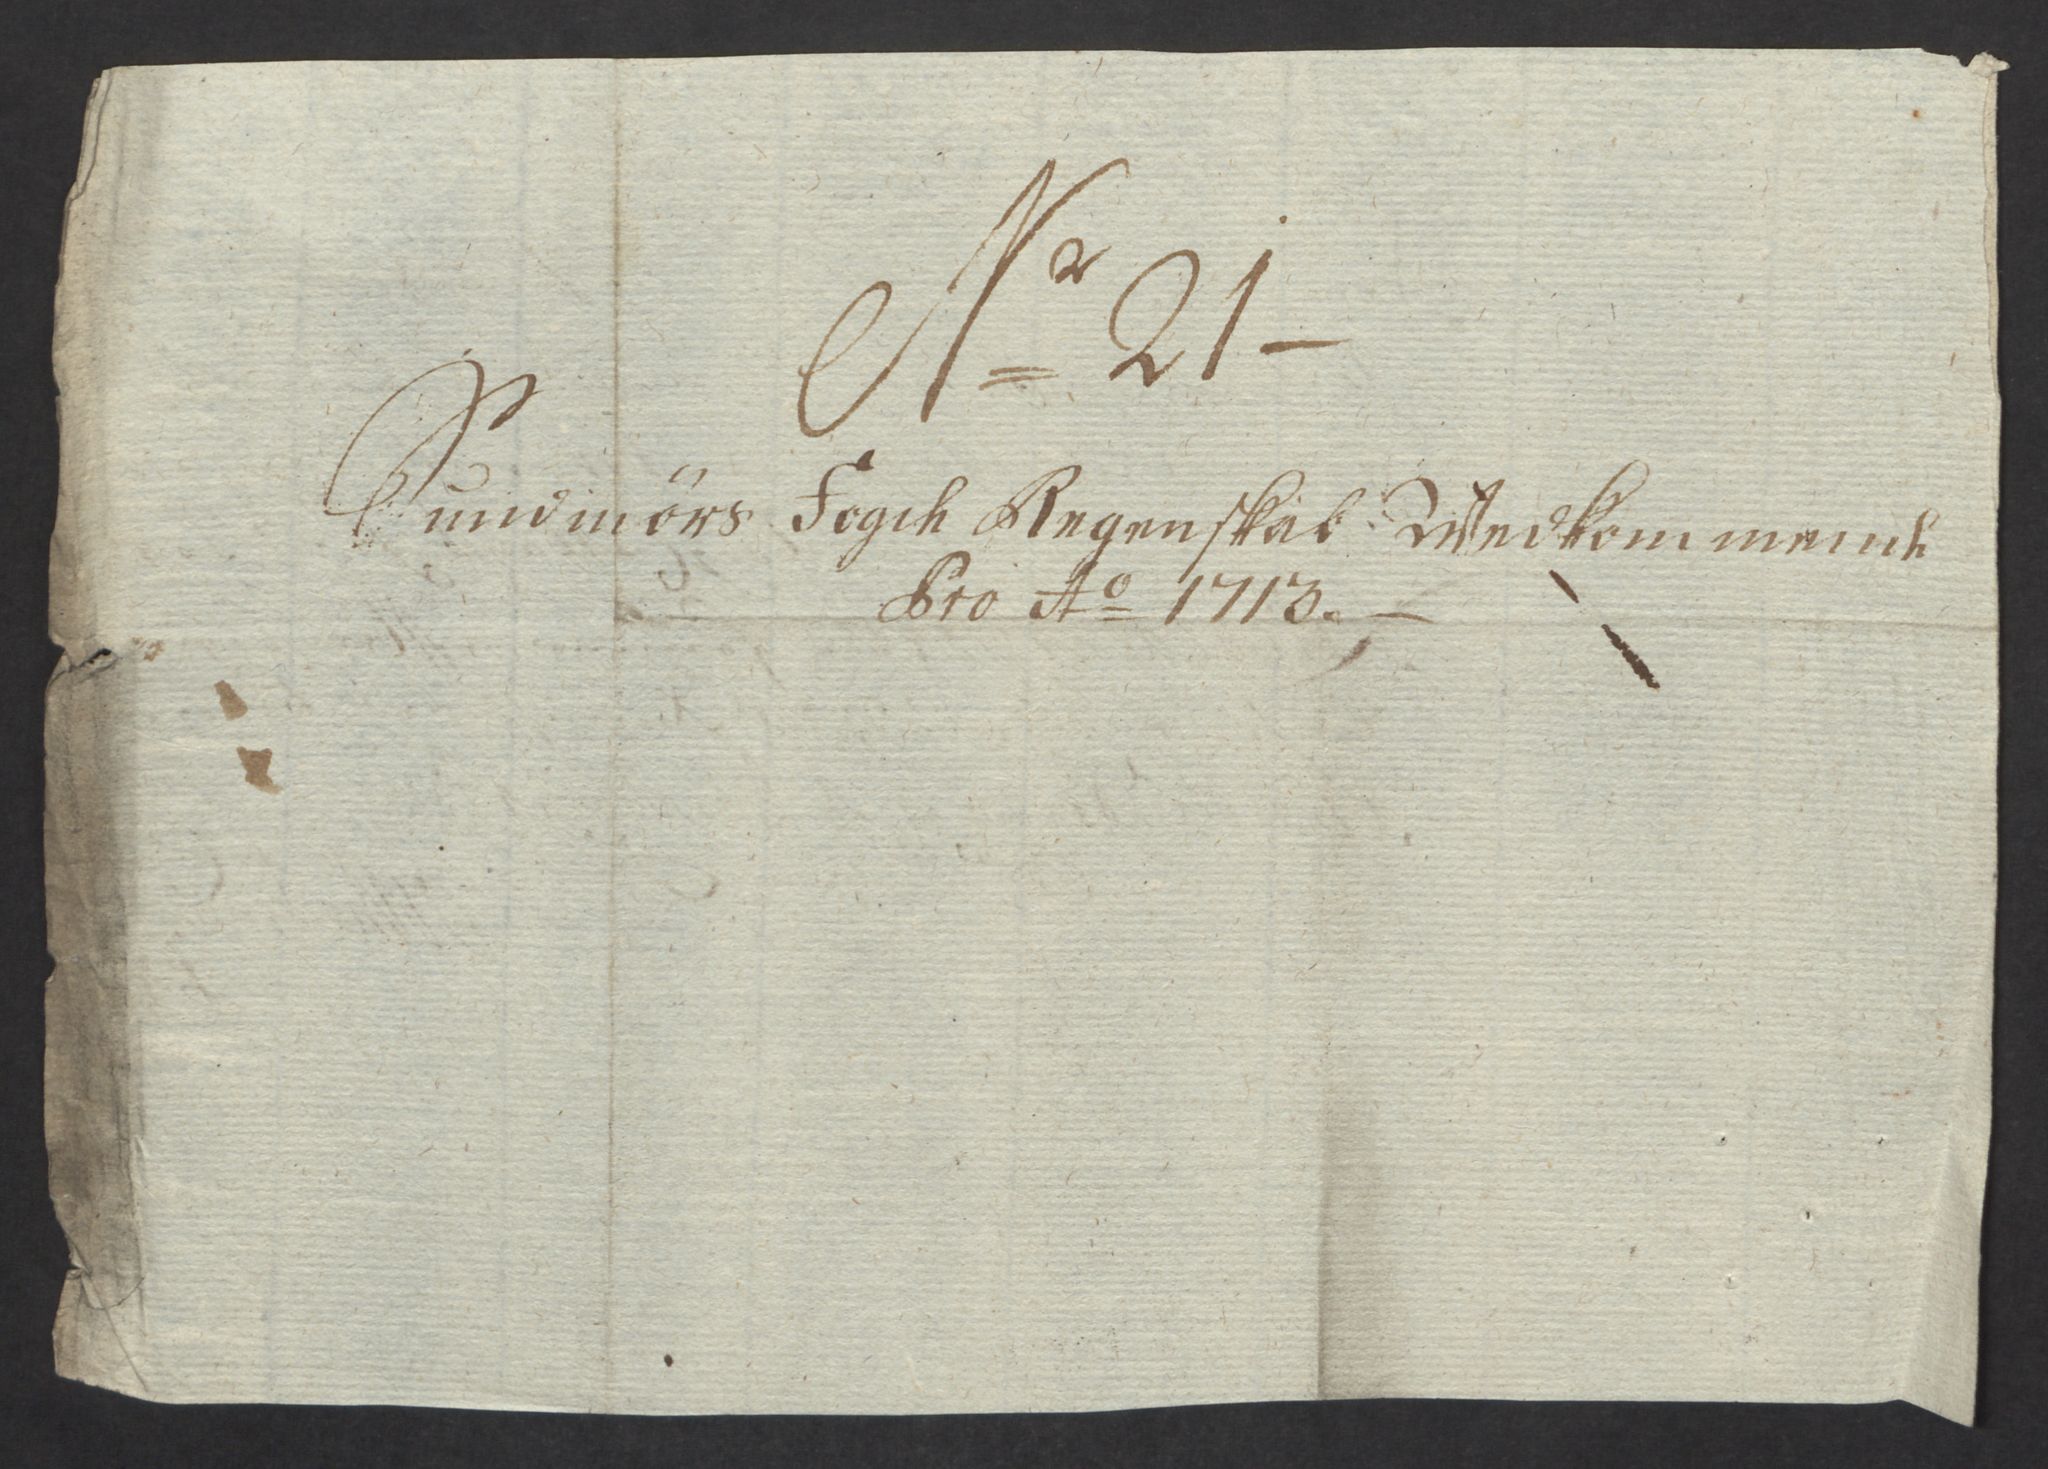 Nr 21 —
Sundmörs Fogd. Regenskab Wedkommend.
Pro Ao 1713. —